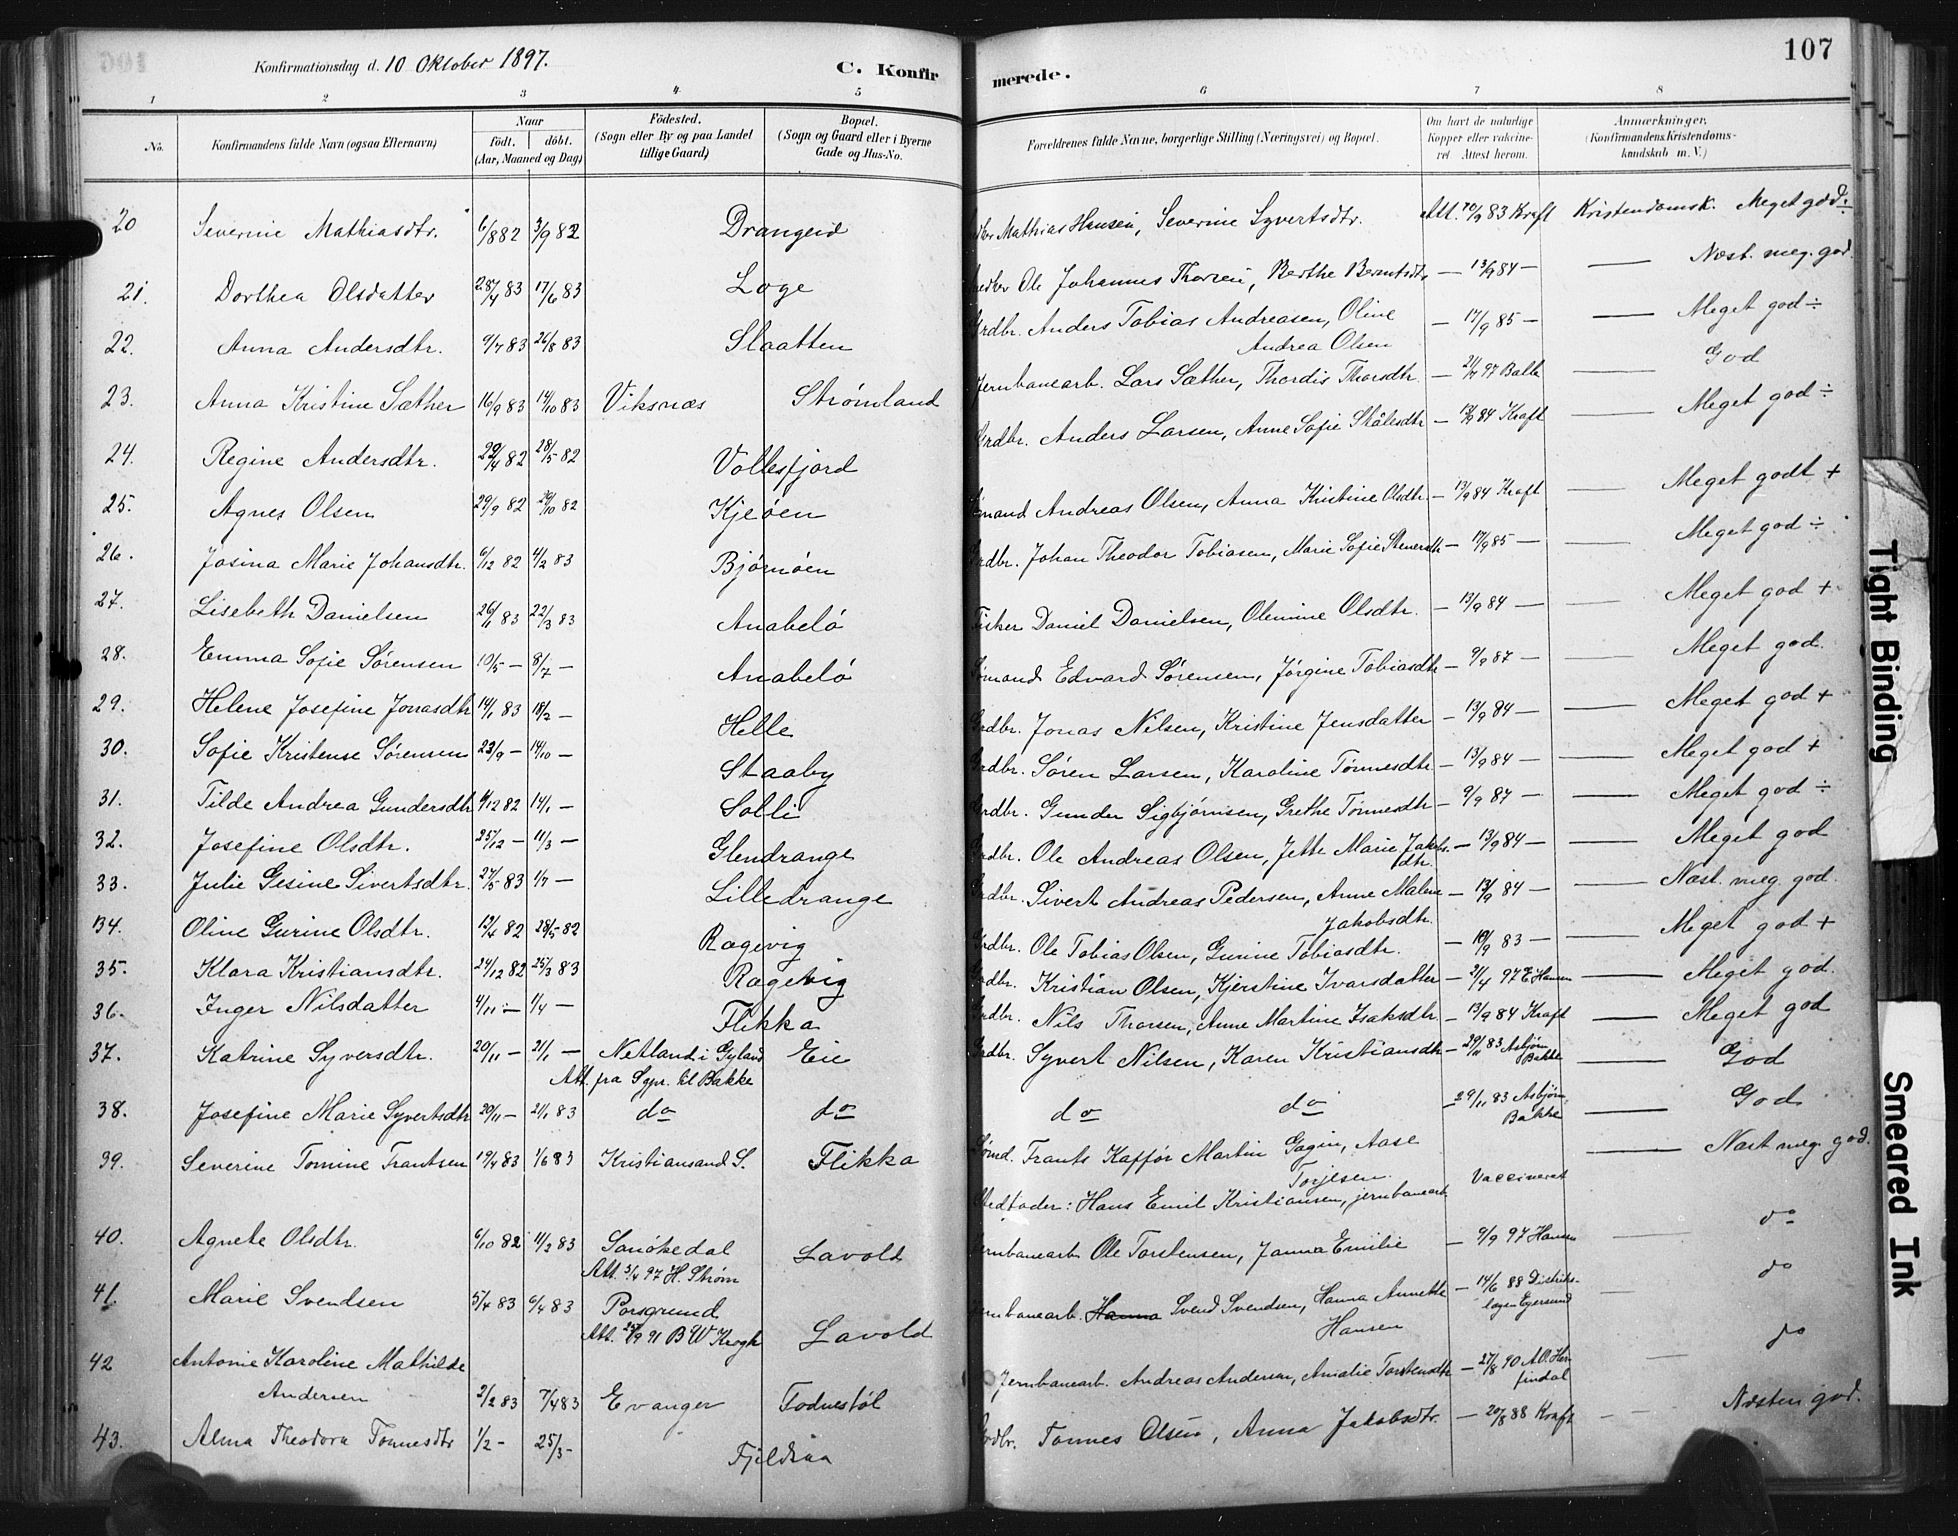 107
Konfirmationsdag d. 10 Oktober 1897.
C. Konfir
merede.
1 2 3 4 5 6 7 8
No.
Konfirmandens fulde Navn (ogsaa Efternavn)
Naar
født. døbt.
(Aar, Maaned og Dag)
Fødested.
(Sogn eller By og paa Landet
tillige Gaard)
Bopæl.
(Sogn og Gaard eller i Byerne
Gade og Hus-No.
Forældrenes fulde Navne, borgerlige Stilling (Næringsvei) og Bopæl.
Om havt de naturlige
Kopper eller vaccine-
ret Attest herom.
Anmærkninger,
(Konfirmandens Kristendoms-
kundskab m. V.)
20 Severine Mathiasdtr. 6/8 82 3/9 82 Drangeid Mathias Hansen, Severine Syvertsdtr. Att. 83 Kraft Kristendomsk. Meget god ÷
21. Dorthea Olsdatter 28/4 83 17/6 83 Loge Ole Johannes Thorsen, Berthe Berntsdtr — 13/9 84 — — Næst. meg. god.
22. Anna Andersdtr. 9/7 83 26/8 83 Slaatten Grdbr. Anders Tobias Andreasen, Oline
Andrea Olsen — 17/9 85 — — Meget god ÷
23. Anna Kristine Sæther 16/9 83 14/10 83 Viksnæs Strømland Jernbanearb. Lars Sæther, Thordis Thorsdtr. — 97 Balle — God
24. Regine Andersdtr. 29/4 82 28/5 82 Vollesfjord Grdbr. Anders Larsen, Anne Sofie Ståles­dtr — 13/9 84 Kraft — Meget god ÷
25. Agnes Olsen 29/9 82 29/10 82 Kjeøen Sømand Andreas Olsen, Anna Kristine Olsdtr. — 13/9 84 Kraft — Meget godt +
26. Josina Marie Johansdtr. 6/12 82 4/2 83 Bjørnøen Grdbr. Johan Theodor Tobiasen, Marie Sofie — 17/9 85 — — Meget god ÷
27. Lisebeth Danielsen 26/1 83 22/3 83 Anabelø Fisker Daniel Danielsen, Olemine Olsdtr. — 13/9 84 — — Meget god +
28. Emma Sofie Sørensen 10/5 — 8/7 — Anabelø Sømand Edvard Sørensen, Jørgine Tobiasdtr — 9/9 87 — — Meget god.
29. Helene Josefine Jonasdtr 14/1 83 18/2 — Helle Grdbr. Jonas Nilsen, Kristine Jensdatter — 13/9 84 — — Meget god +
30. Sofie Kristense Sørensen 23/9 — 14/10 — Staaby Grdbr. Søren Larsen, Karoline Tønnesdtr. — 13/9 84 — — Meget god +
31. Tilde Andrea Gundersdtr 12 82 14/1 — Solli Grdbr. Gunder Sigbjørnsen, Grethe Tønnesdtr — 9/9 87 — — Meget god ÷
32. Josefine Olsdtr. 25/12 — 11/3 — Glendrange Grdbr. Ole Andreas Olsen, Jette Marie Jakobs-
dtr. — 13/9 84 — — Meget god
33. Julie Gesine Sivertsdtr. 27/5 83 1/7 — Lilledrange Grdbr. Sivert Andreas Pedersen, Anne Malene
Jakobsdtr. — 13/9 84 — — Næst. meg. god.
34. Oline Gurine Olsdtr. 13/4 82 28/5 82 Ragevig Grdbr. Ole Tobias Olsen, Gurine Tobiasdtr. — 10/9 83 — — Meget god +
35. Klara Kristiansdtr. 24/12 82 25/3 83 Ragevig Grdbr. Kristian Olsen, Kjerstine Ivarsdatter — 21/4 97 E Hansen — Meget god.
36. Inger Nilsdatter 4/11 — 1/4 — Flikka Grdbr. Nils Thorsen, Anne Martine Isaksdtr — 13/9 84 Kraft — Meget god
37. Katrine Syversdtr. 20/11 — 21/1 — Netland i Gyland
Att. fra Sgpr. til Bakke Eie Grdbr. Syvert Nilsen, Karen Kristiansdtr — 29/11 83 Asbjørn
Bakke — God
38. Josefine Marie Syvertsdtr 20/11 — 21/1 83 do do do do — 29/11 83 Asbjørn
Bakke — God
39. Severine Tomine Frantsen 19/4 83 1/6 83 Kristiansand S. Flikka Sømd. Frants Kaffør Martin Gagin, Aase
Torjesen.
Stedfader: Hans Emil Kristiansen, jernbanearb Vaccineret — Næst meg. god.
40. Agnete Olsdtr. 6/10 82 11/2 83 Sanøkedal
Att. 3/4 97 H. Strøm Lavold Jernbanearb Ole Torstensen, Janna Emilie — 9/9 97 Hansen — do
41. Marie Svendsen 5/4 83 6/4 83 Porsgrund
Att. 25/9 91 B W Krogh Lavold Jernbanearb. Hanna Svend Svendsen, Hanna Annette
Hansen — 14/6 88 Distrikts-
lægen Egersund — do
42 Antonie Karoline Mathilde
Andersen 2/2 83 7/4 83 Evanger Fodnestøl Jernbanearb. Andreas Andersen, Amalie Torstensdtr — 27/8 90 — do
43. Alma Theodora Tønnesdtr 1/2 — 25/3 — Fjeldsaa Grdbr. Tønnes Olsen, Anna Jakobsdtr. — 20/8 88 Kraft — Næsten god.
Tight Binding
Smeared Ink